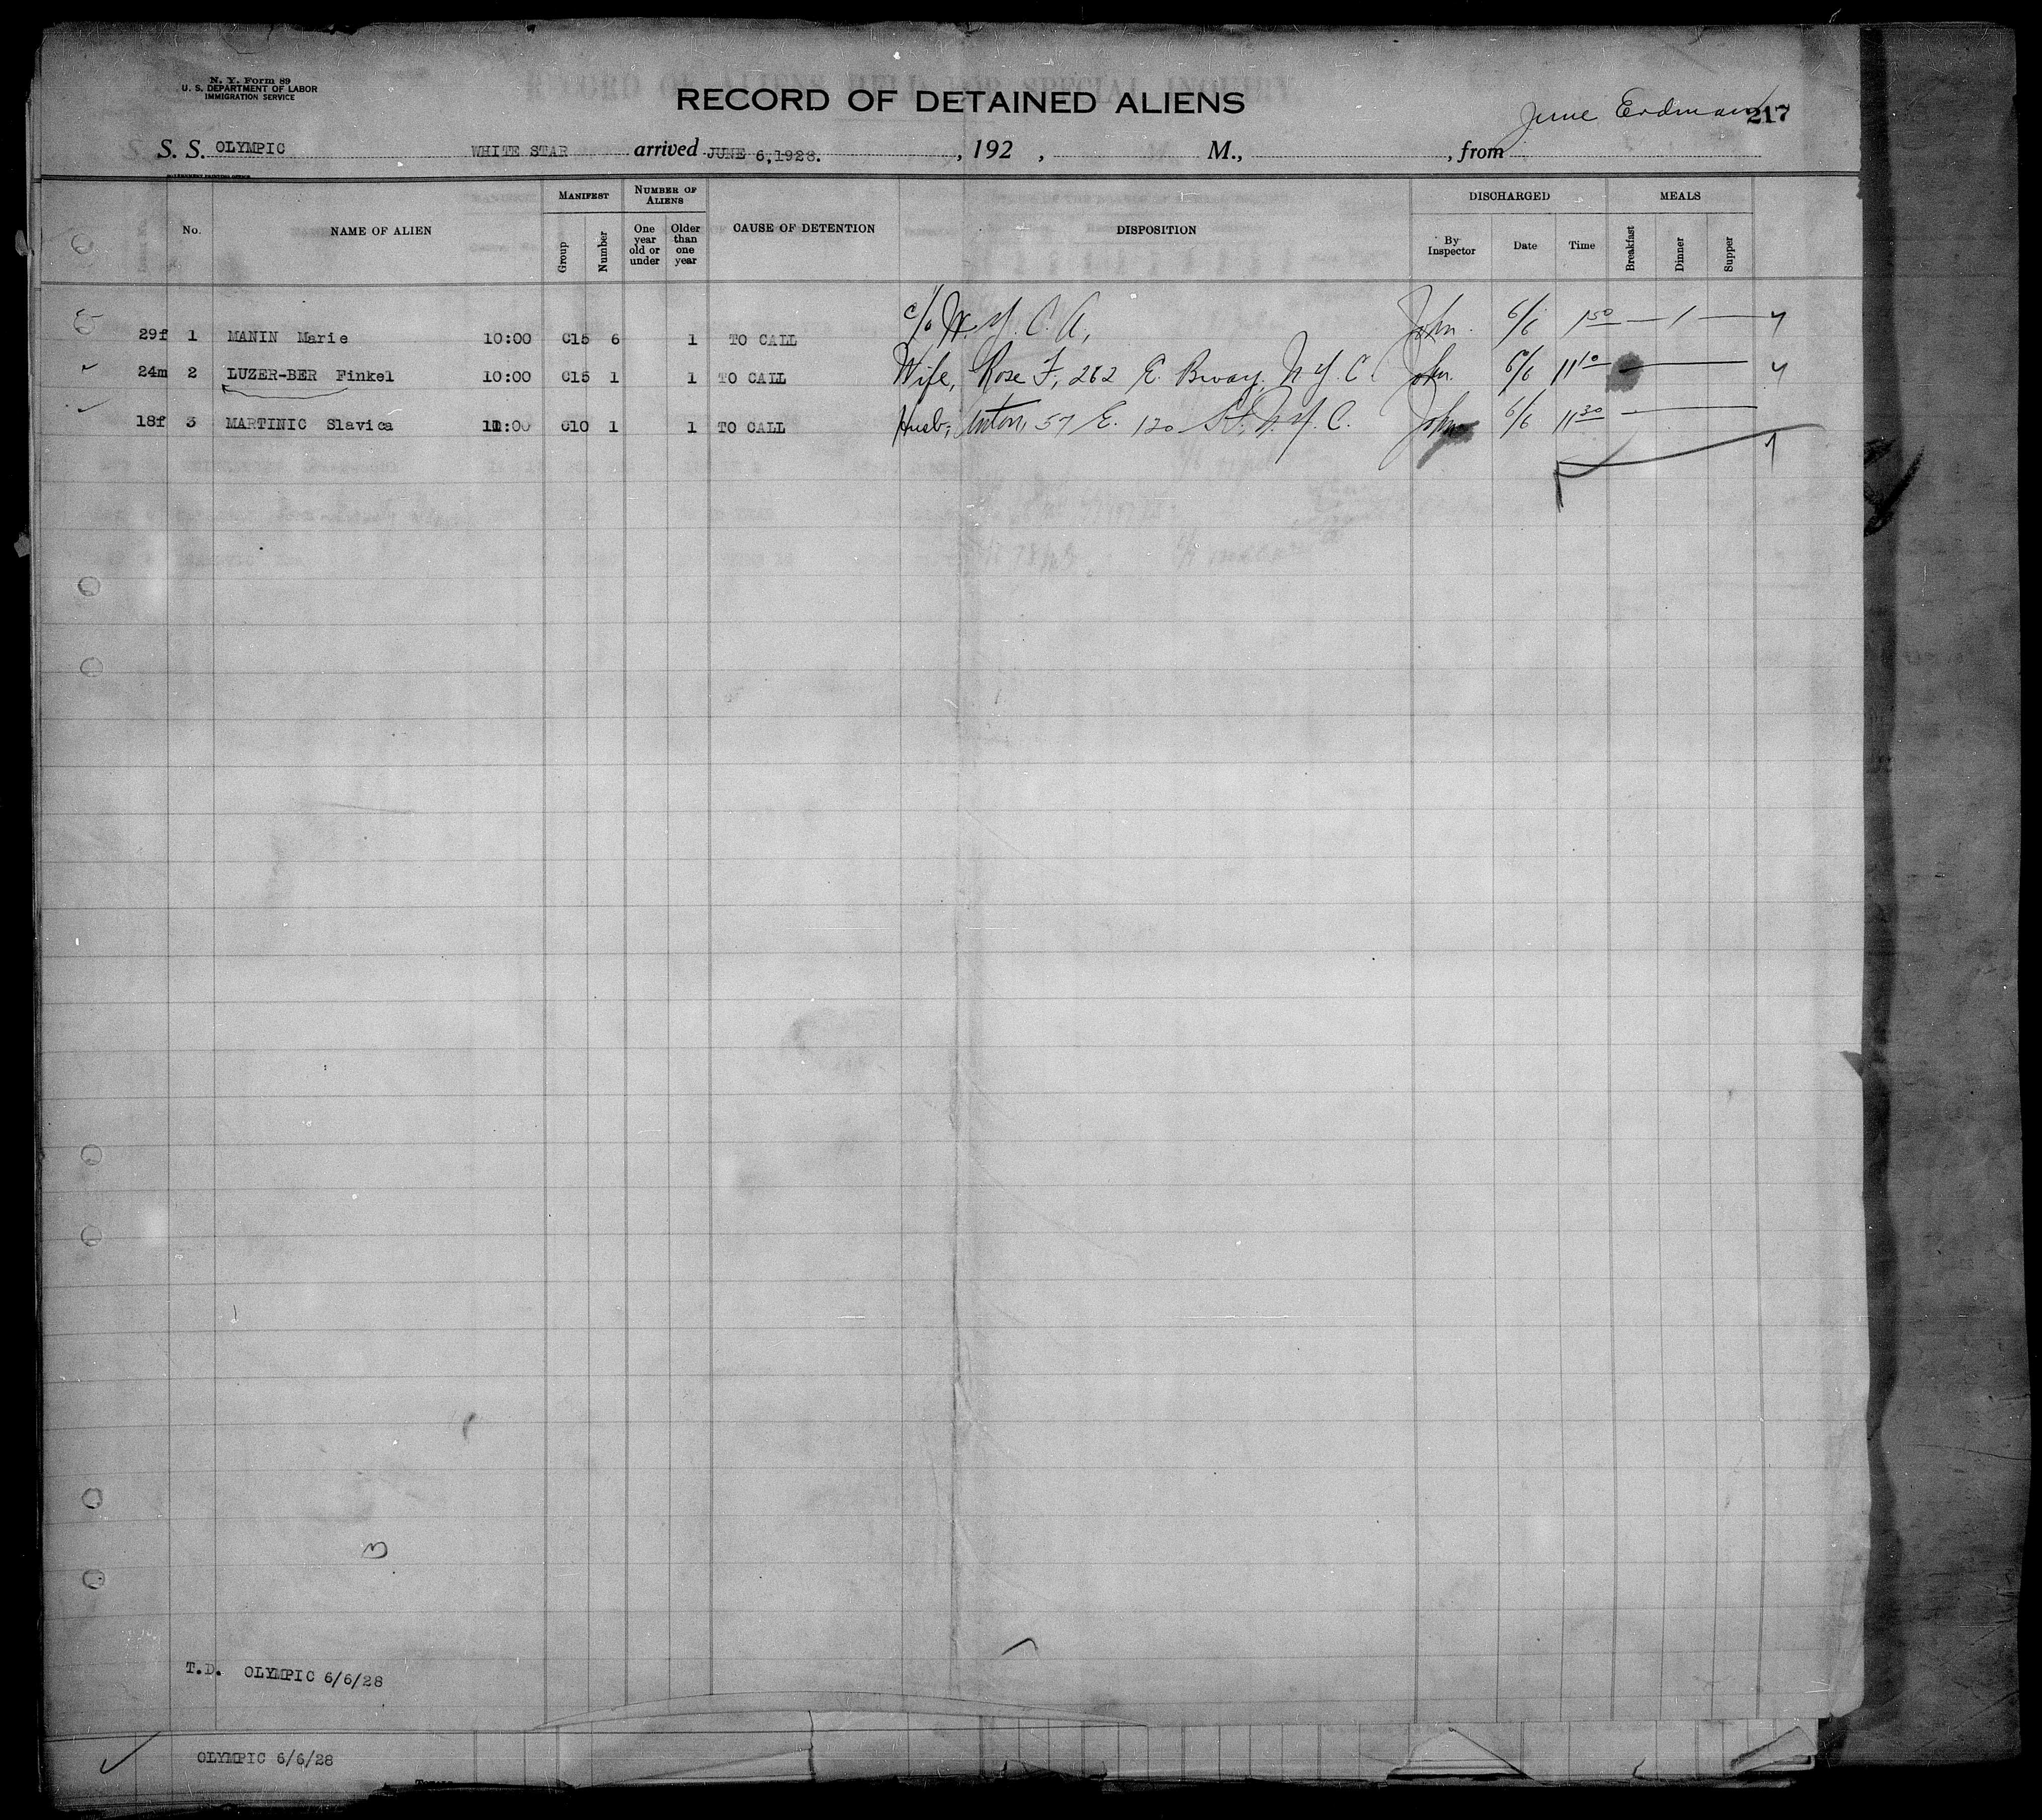 N. Y. Form 89
U. S. DEPARTMENT OF LABOR
IMMIGRATION SERVICE
RECORD OF DETAINED ALIENS
June Erdman 217
S. S. OLYMPIC WHITE STAR arrived JUNE 6,1928. , 192 , M., , from
GOVERNMENT PRINTING OFFICE
No. NAME OF ALIEN MANIFEST Group Number NUMBER OF ALIENS One year old or under Older than one year CAUSE OF DETENTION DISPOSITION DISCHARGED By Inspector Date Time MEALS Breakfast Dinner Supper
29f 1 MANIN Marie 10:00 C15 6 1 TO CALL c/o W. Y. C. A, John. 6/6 1 50 — 1 —
24m 2 LUZER-BER Finkel 10:00 C15 1 1 TO CALL Wife, Rose F, 262 E. Bway, N.Y.C. John. 6/6 11 10 —
18f 3 MARTINIC Slavica 11:00 C10 1 1 TO CALL Husb; Anton, 57 E. 120 St, N.Y.C. John 6/6 11 30 —
3
T.D. OLYMPIC 6/6/28
OLYMPIC 6/6/28